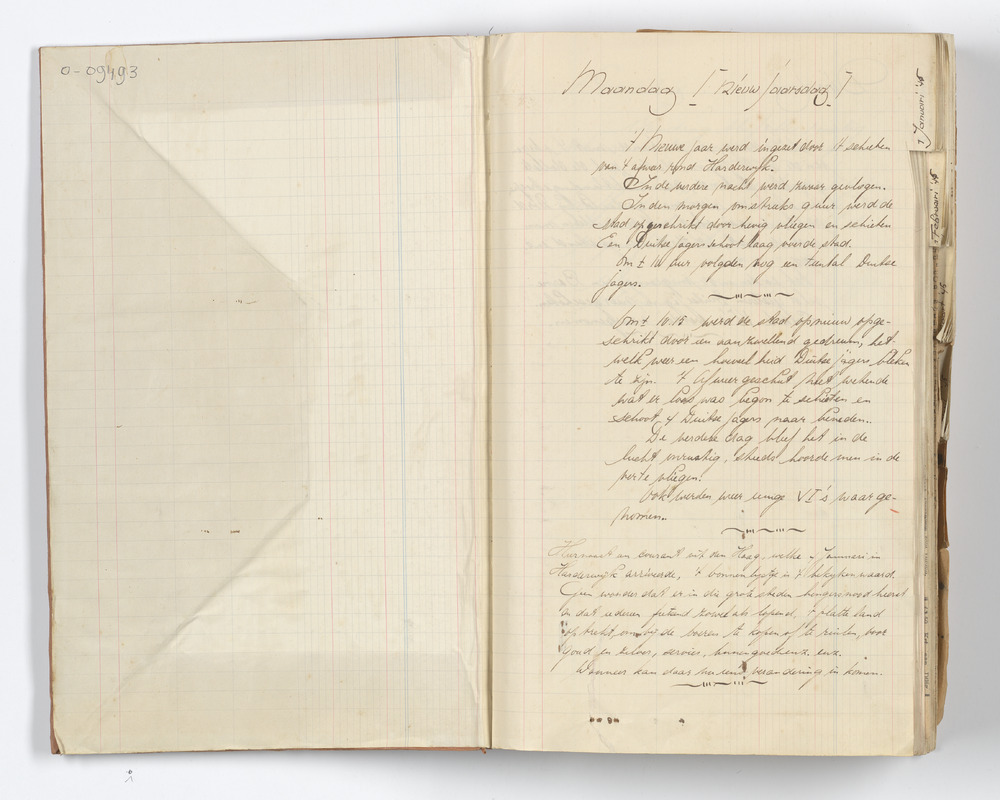 0-09493
Maandag 1 [Nieuwjaarsdag]
Januari '45
Februari '45
't Nieuwe jaar werd ingezet door 't schieten
van 't afweer rond Harderwijk.
In de verdere nacht werd zwaar gevlogen.
In den morgen omstreeks 9 uur werd de
stad opgeschrikt door hevig vliegen en schieten
Een Duitse jagers schoot laag over de stad.
Om ± 10 uur volgden nog een tiental Duitse
jagers.
Om ± 10.15 werd de stad opnieuw opge-
schrikt door een aanzwellend gedreun, het-
welk weer een hoeveelheid Duitse jagers bleken
te zijn. 't Afweergeschut niet wetende
wat er loos was begon te schieten en
schoot 4 Duitse jagers naar beneden..
De verdere dag bleef het in de
lucht onrustig, steeds hoorde men in de
verte vliegen.
Ook werden weer enige V1's waarge-
nomen..
Hiernaast een courant uit den Haag, welke Januari in
Harderwijk arriveerde, 't bonnenlijstje is 't bekijken waard.
Geen wonder dat er in die grote steden hongersnood heerst
en dat iedereen fietsend zowel als lopend, 't platte land
optrekt, om bij de boeren te kopen of te ruilen, voor
goud en zilver, servies, linnengoed enz. enz.
Wanneer kan daar nu eens verandering in komen.